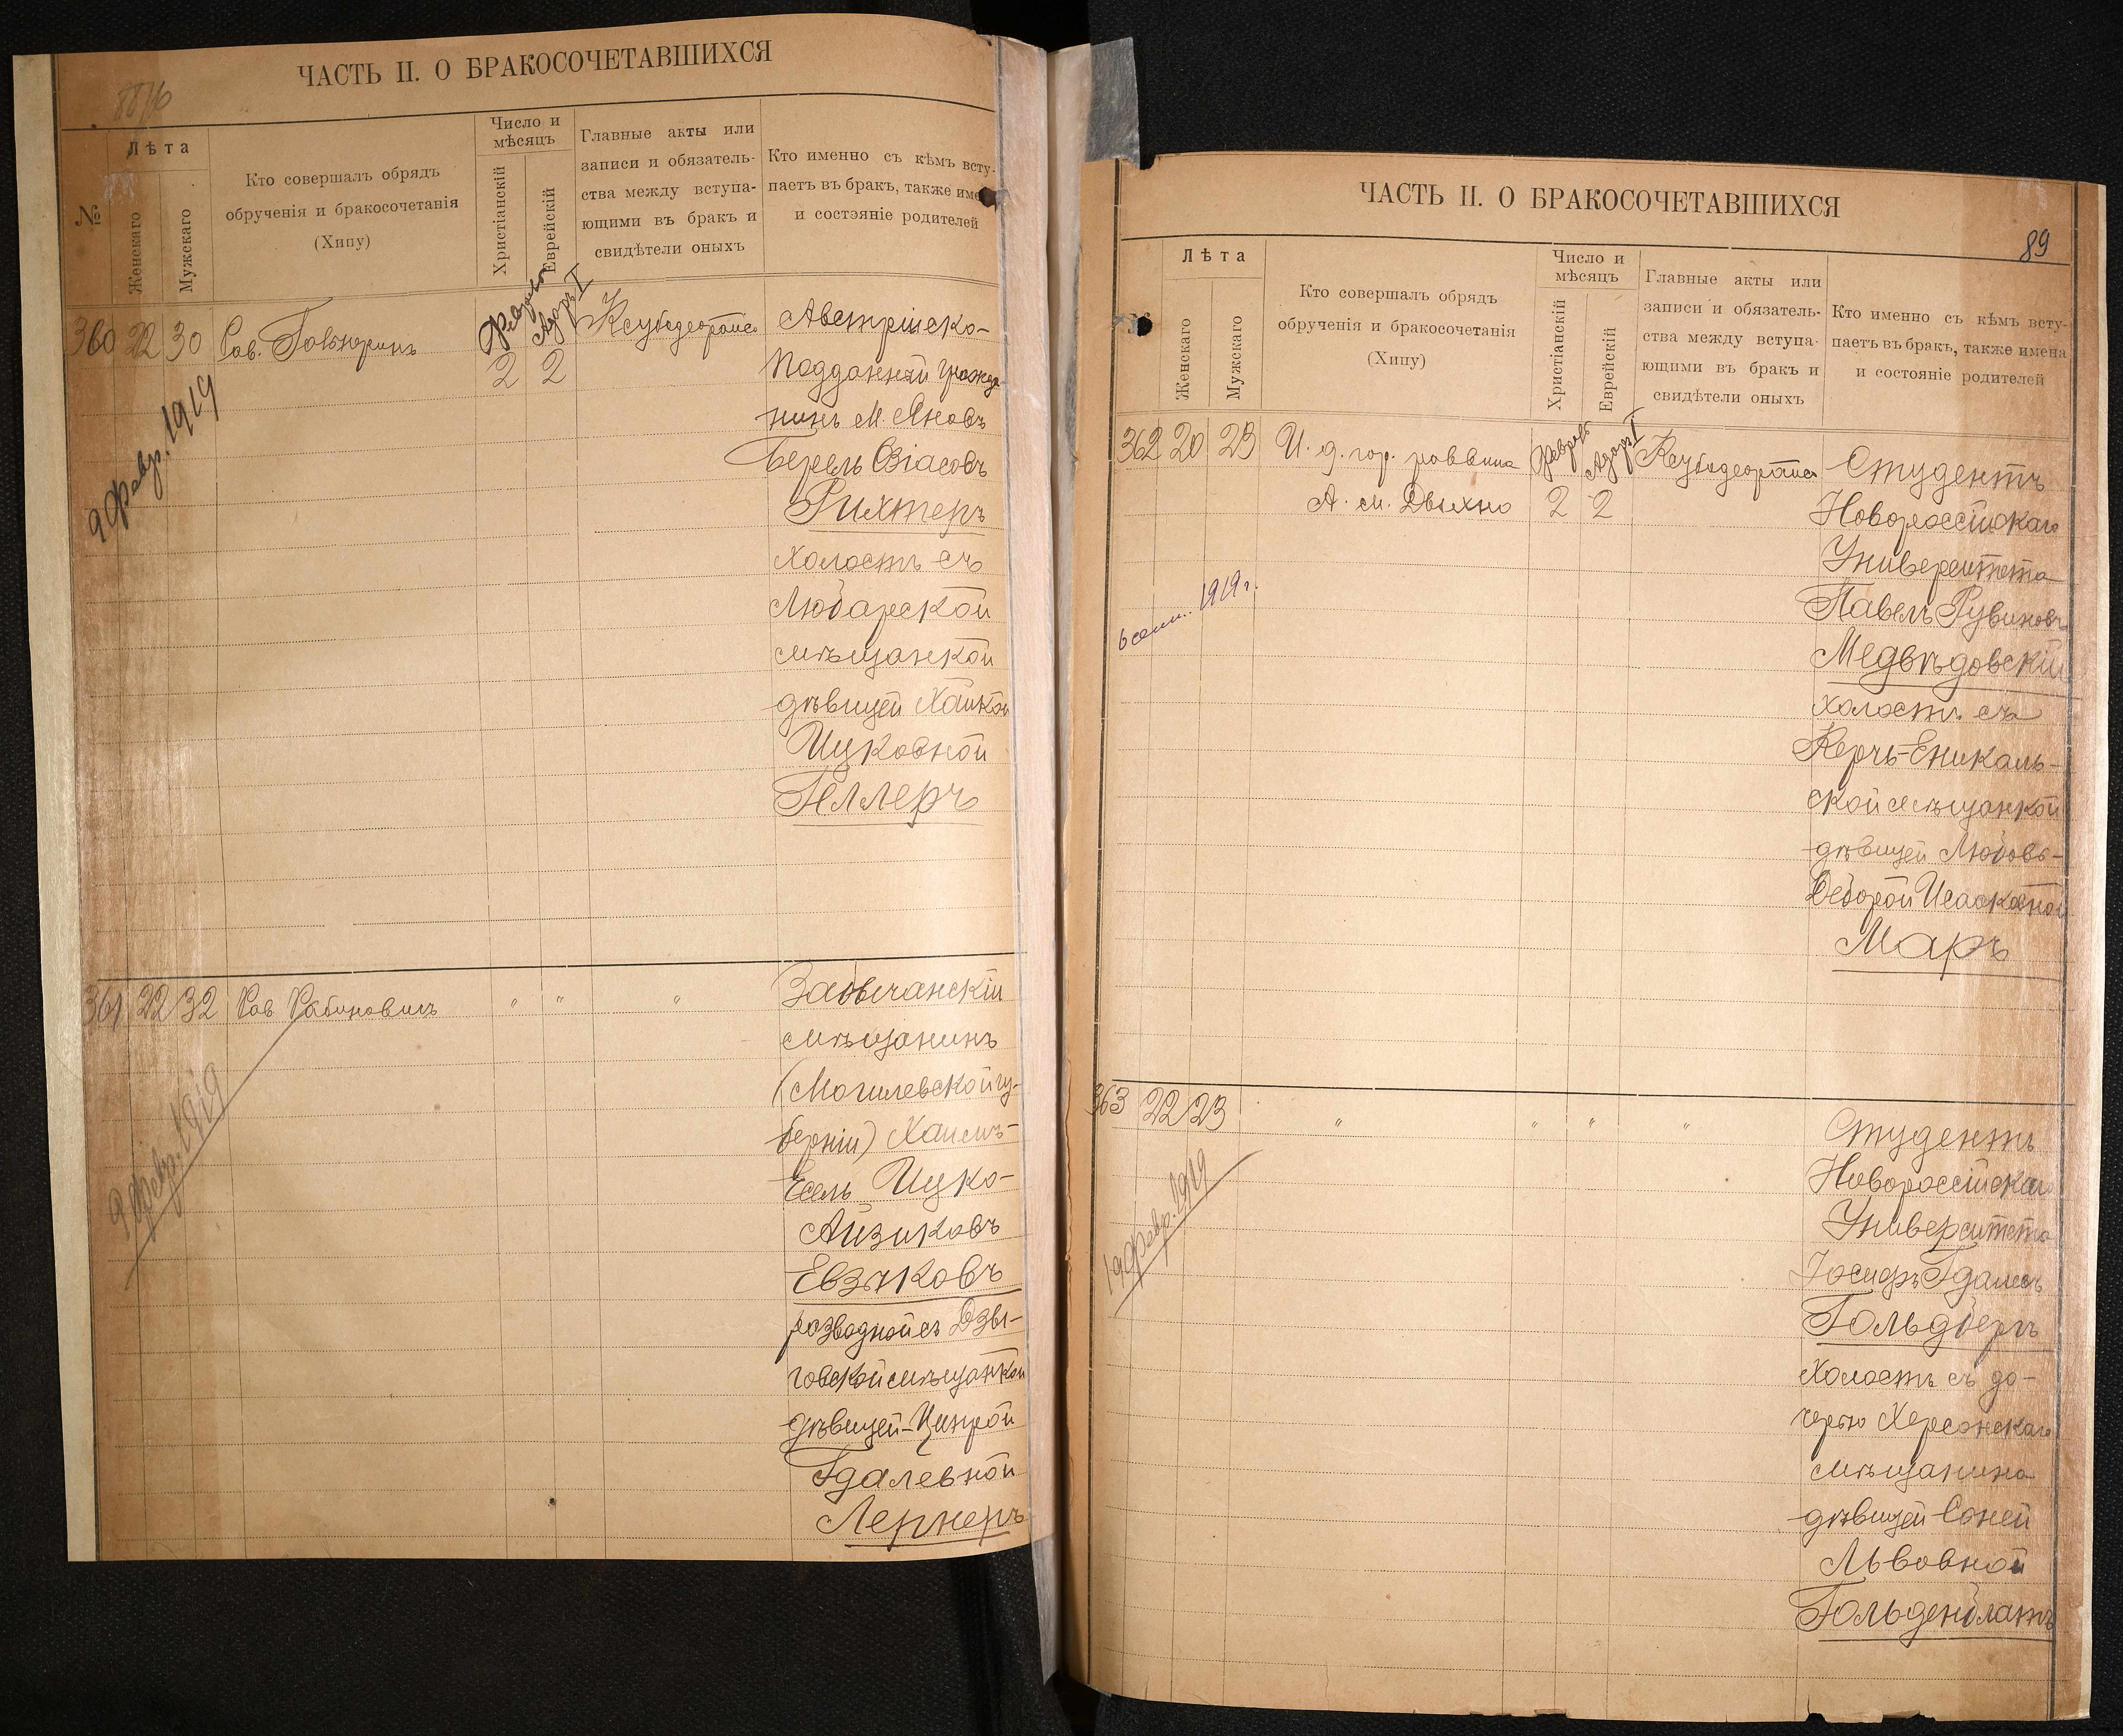 ЧАСТЬ II. О БРАКОСОЧЕТАВШИХСЯ
№
Лѣта
Женскаго
Мужскаго
Кто совершалъ обрядъ
обрученія и бракосочетанія
(Хипу)
Число и
мѣсяцъ
Христіанскій
Еврейскій
Главные акты или
записи и обязатель-
ства между вступа-
ющими въ бракъ и
свидѣтели оныхъ
Кто именно съ кѣмъ всту-
паетъ въ бракъ, также име
и состояніе родителей
360 22 30 Рав.
Адаръ I
2 2
Австрійско-
подданный гражда-
нинъ М. Яновъ
Берель
Рихтеръ
холостъ съ
Любарской
мѣщанкой
дѣвицей Хайкой
Ицковной
Геллеръ
9 февр. 1919
361 22 32 Рав Рабиновичъ " " "
мѣщанинъ
(Могилевской гу-
берніи) Хаимъ-
Есель Ицко-
Айзиковъ
Евзиковъ
разводной съ Дзы-
говской мѣщанкой
дѣвицей-Ципрой
Гдалевной
Лернеръ
9 февр. 1919
ЧАСТЬ II. О БРАКОСОЧЕТАВШИХСЯ
89
Лѣта
Женскаго
Мужскаго
Кто совершалъ обрядъ
обрученія и бракосочетанія
(Хипу)
Число и
мѣсяцъ
Христіанскій
Еврейскій
Главные акты или
записи и обязатель-
ства между вступа-
ющими въ бракъ и
свидѣтели оныхъ
Кто именно съ кѣмъ всту-
паетъ въ бракъ, также имена
и состояніе родителей
362 20 23 И. д. гор. раввина
А. м. Двыхно
Адаръ I
2 2
Студентъ
Новороссійскаго
Университета
Павелъ Рувиновъ
Медвѣдовскій
холостъ съ
Керчь-Еникаль-
ской мѣщанкой
дѣвицей Любовь-
Деборой Исааковной
Маръ
1919 г.
363 22 23 " " " "
Студентъ
Новороссійскаго
Университета
Іосифъ Гдалевъ
Гольдбергъ
холостъ съ до-
черью Херсонскаго
мѣщанина
дѣвицей Соней
Львовной
Гольденблатъ
19 февр. 1919